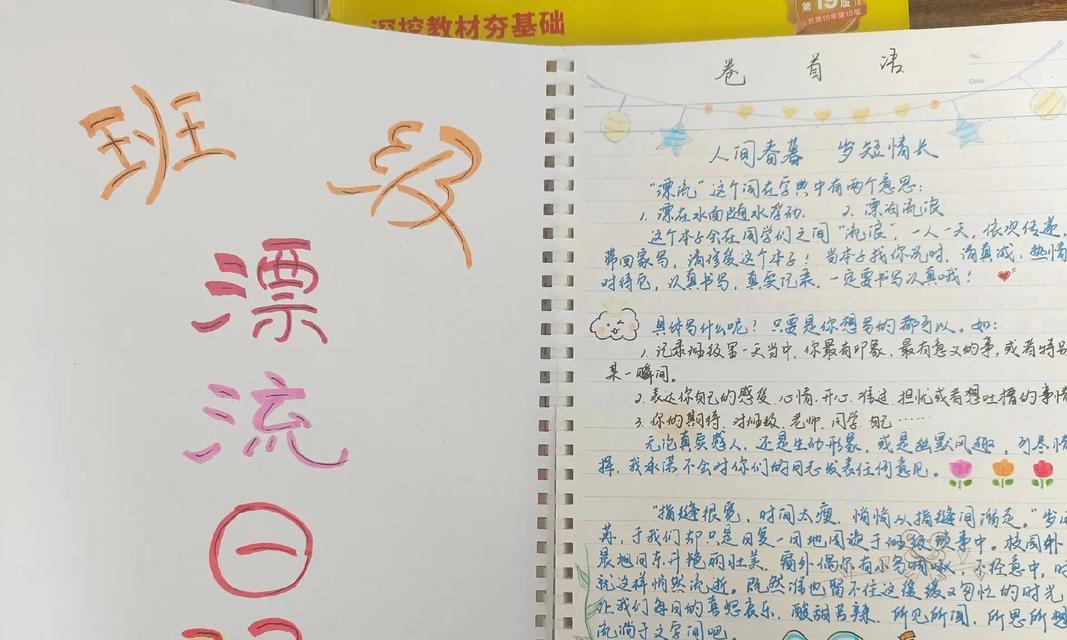 深挖教材夯基础
第19版
山西第15年第15版
班级
漂
流
日
卷首语
No.
Date
人间春暮 岁短情长
"漂流"这个词在字典中有两个意思:
1. 漂在水面随水浮动. 2. 漂泊流浪
这个本子会在同学们之间"流浪",一人一天,依次传递,
带回家写,请珍爱这个本子!当本子找你玩时,请真诚,热情
对待它,认真书写,真实记录,一定要书写认真哦!
具体写什么呢?只要是你想写的都可以。如:
1. 记录班级里一天当中,你最有印象,最有意义的事,或者特别
某一瞬间。
2. 表达你自己的感受.心情.开心.难过.担忧或者想吐槽的事情
3. 你的期待.对班级.老师.同学.自己……
无论真实感人,还是生动形象,或是幽默风趣,可尽情
挥,我承诺不会对你们的日志发表任何意见。
"指缝很宽,时间太瘦,悄悄从指缝间溜走。"岁月
苒,于我们却只是日复一日地周旋于班级琐事中。校园外
晨旭日东升艳丽壮美,窗外偶尔有小鸟啁啾,不经意中,时
就这样悄然流逝。既然谁也留不住这缓缓又匆忙的时光
让我们每日的喜怒哀乐,酸甜苦辣,所见所闻,所思所想
流淌于文字间吧。